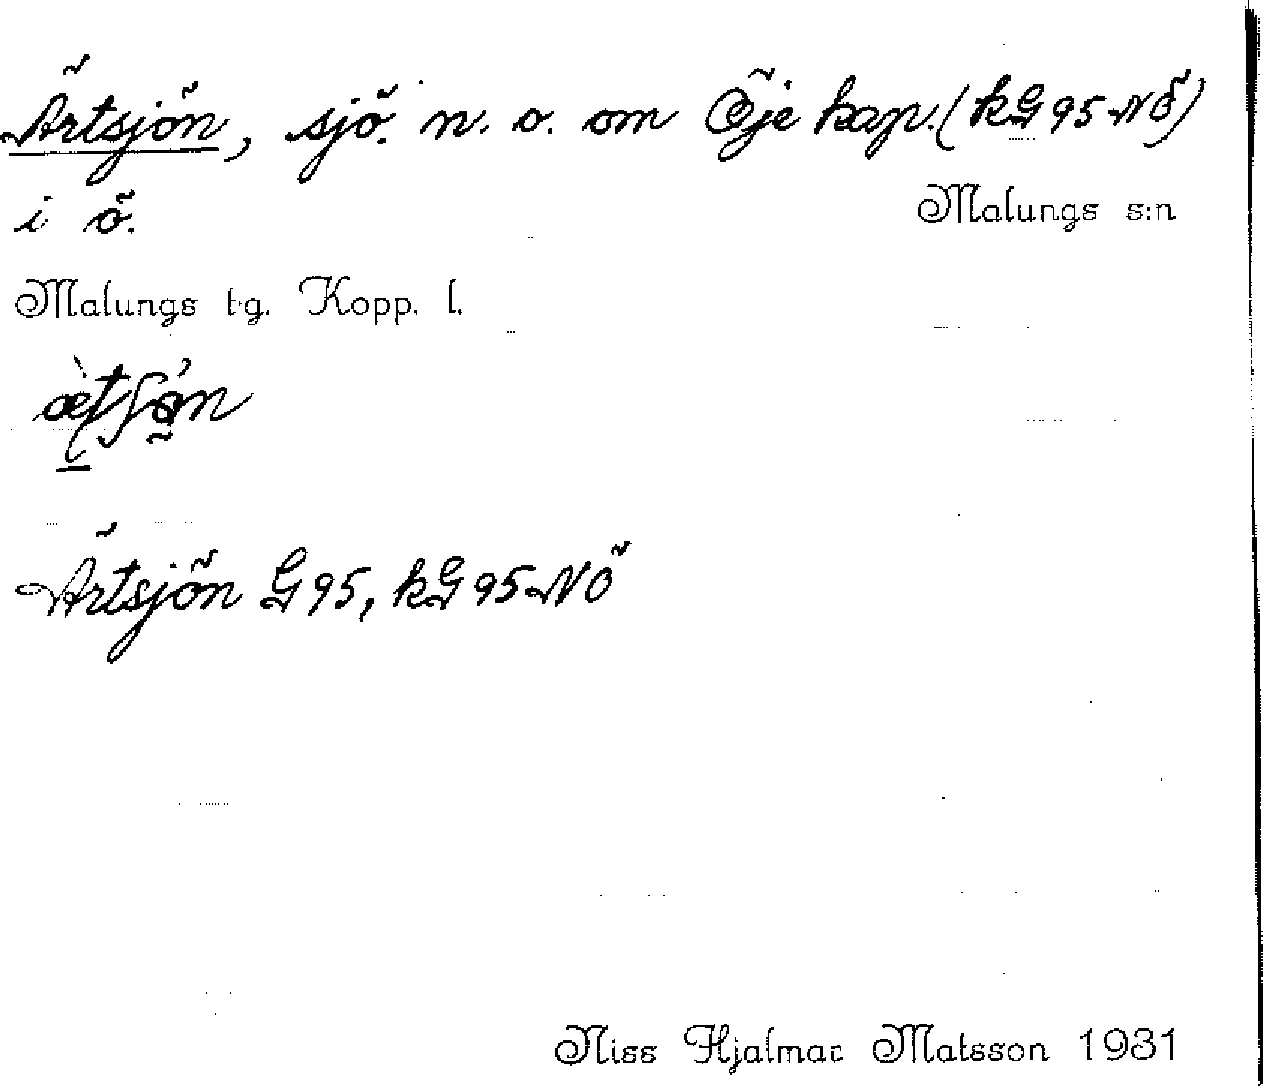 Ärtsjön, sjö. n. o. om Öje kap. (kG95NÖ)
i ö.
Malungs s:n
Malungs tg. Kopp. l.
Ärtsjön G95, kG95NÖ
Niss Hjalmar Matsson 1931